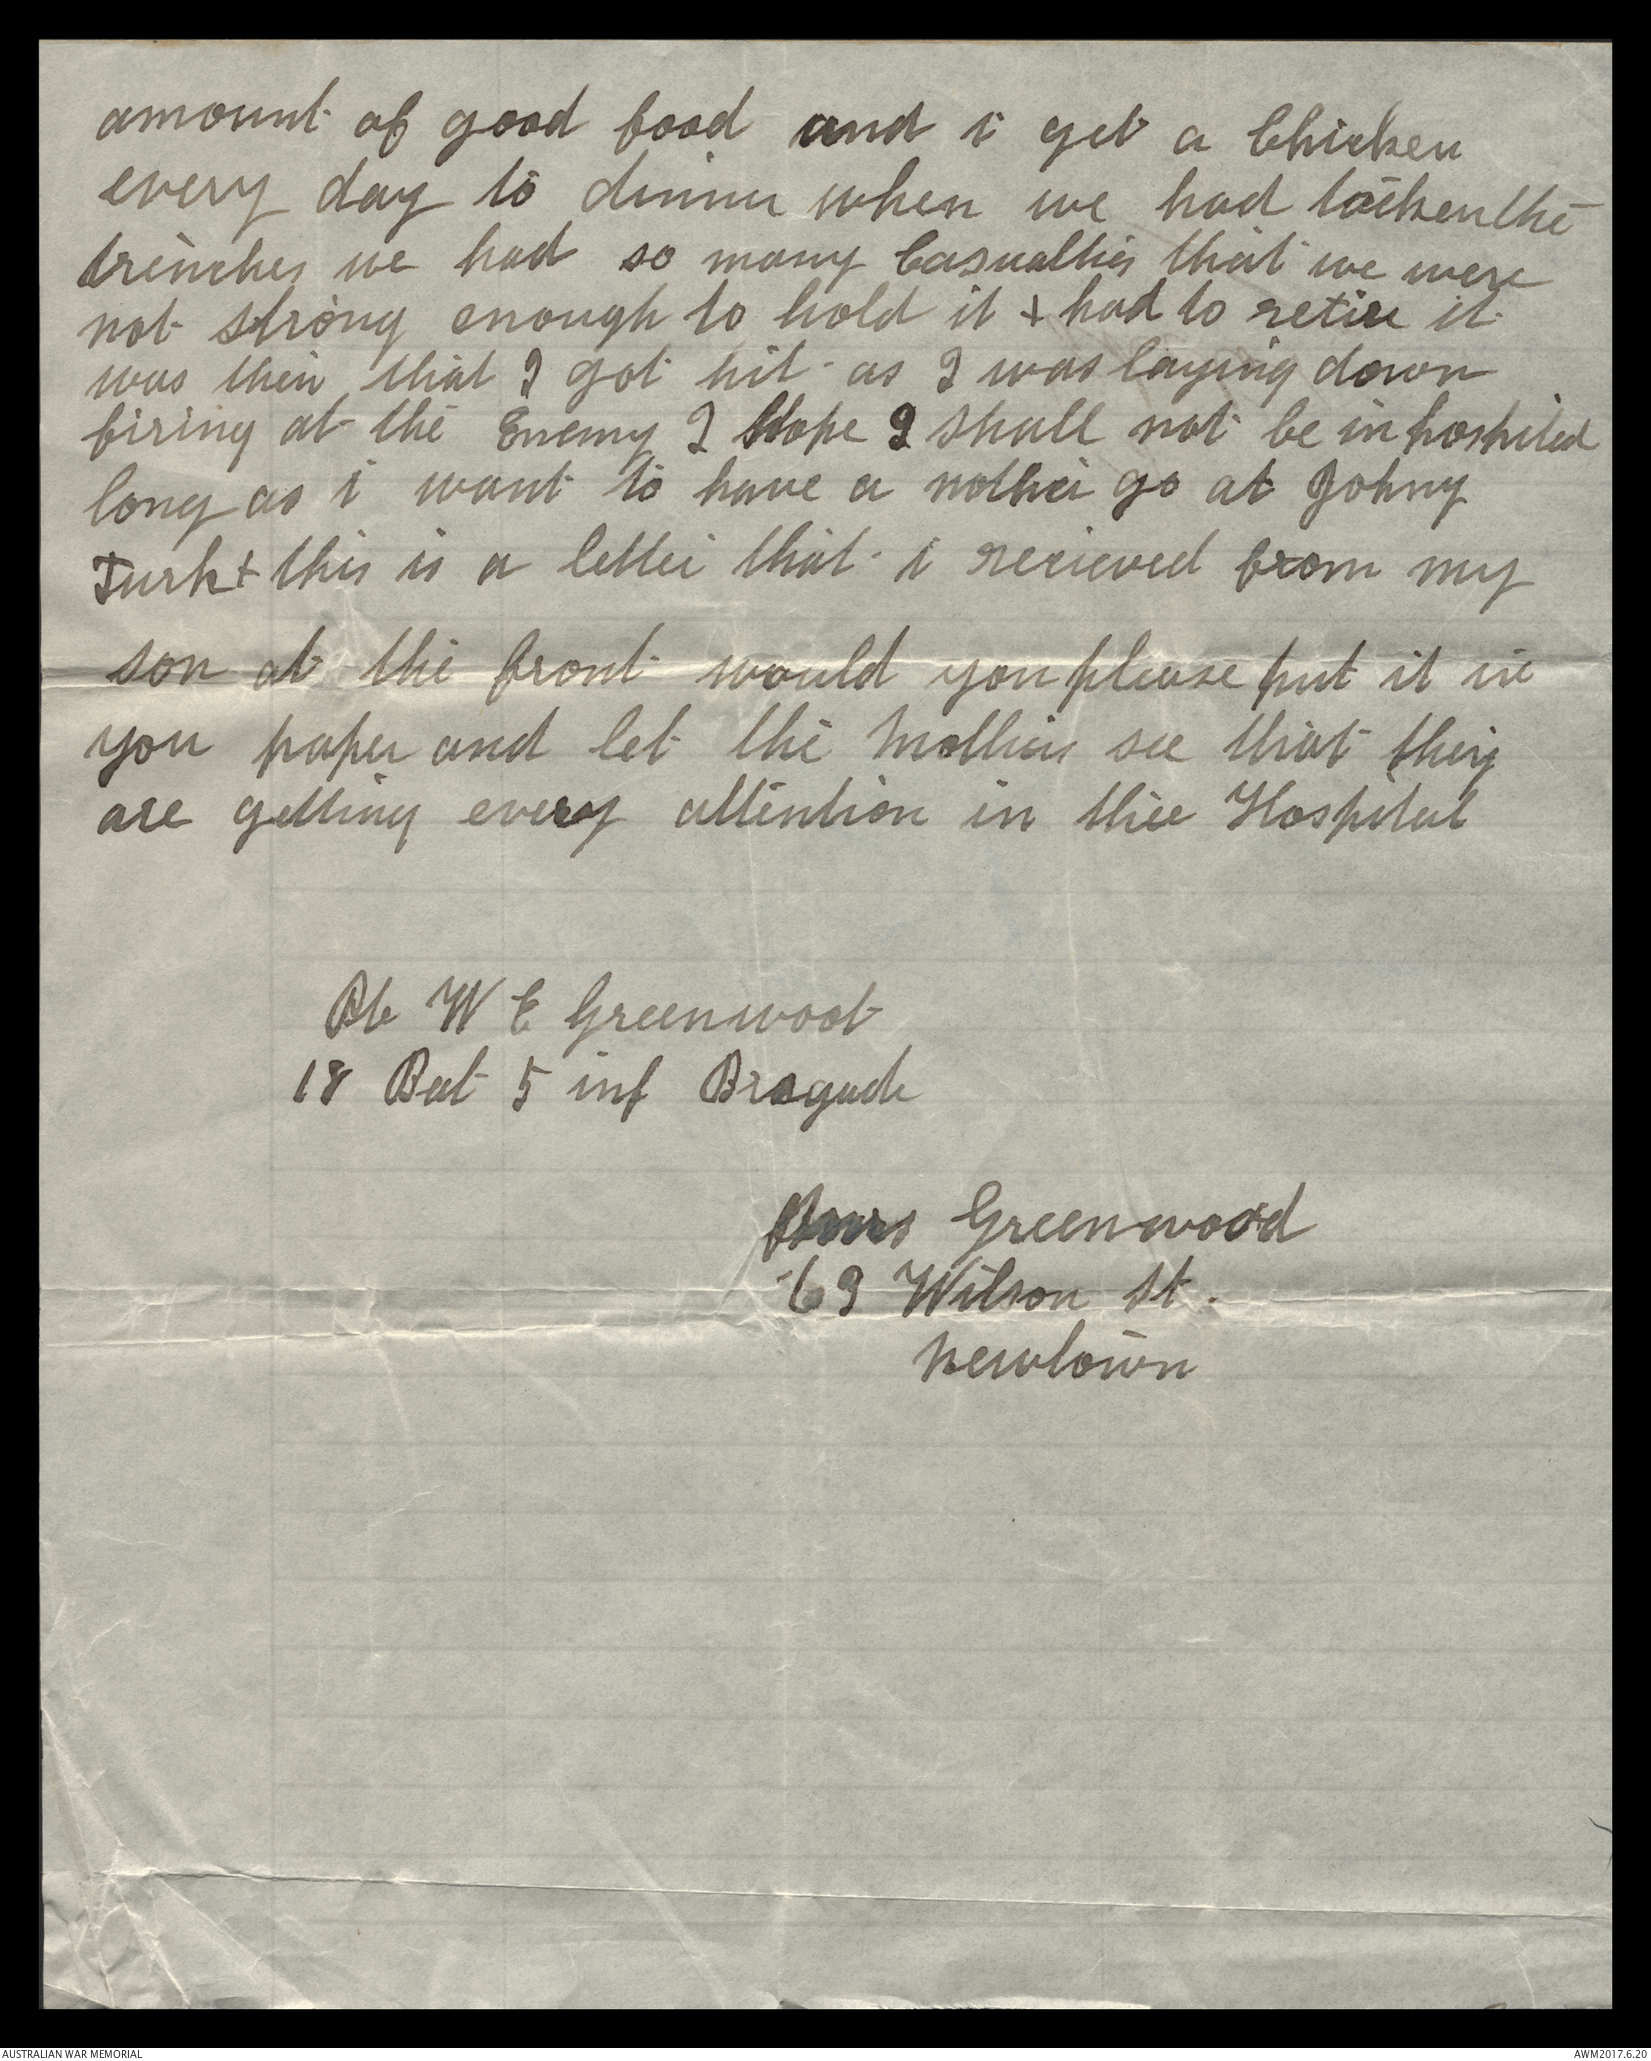 amount of good food and i get a Chicken
every day to dinner when we had tacken the
trenches we had so many Casualties that we were
not strong enough to hold it + had to retire it
was then that I got hit as I was laying down
firing at the Enemy I Hope I shall not be in hospital
long as i want to have a nother go at Johny
Turk + this is a letter that i recieved from my
son at the front would you please put it in
you paper and let the Mothers see that they
are getting every attention in thee Hospital
W E Greenwood
18 Bat 5 inf Bragade
Greenwood
69 Wilson St.
Newtown
AUSTRALIAN WAR MEMORIAL
AWM2017.6.20